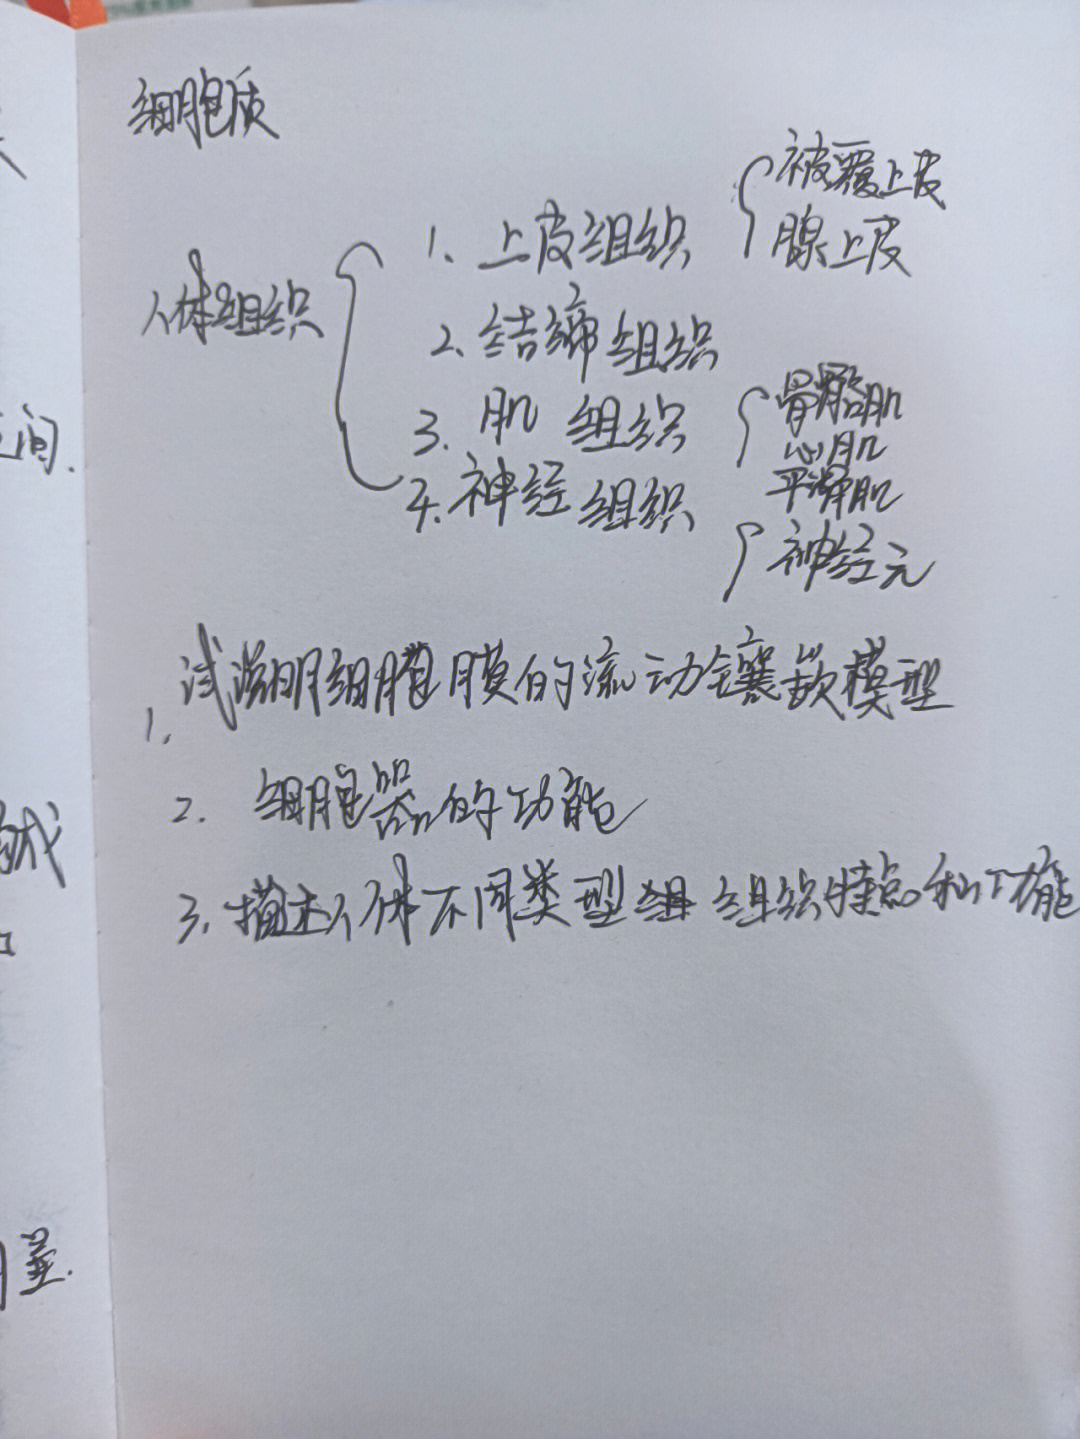 细胞质
人体组织
1. 上皮组织
被覆上皮
腺上皮
2. 结缔组织
3. 肌 组织
骨骼肌
心肌
平滑肌
4. 神经组织
神经元
1. 试说明细胞膜的流动镶嵌模型
2. 细胞器的功能
3. 描述人体不同类型组 组织特点和功能
间.
成